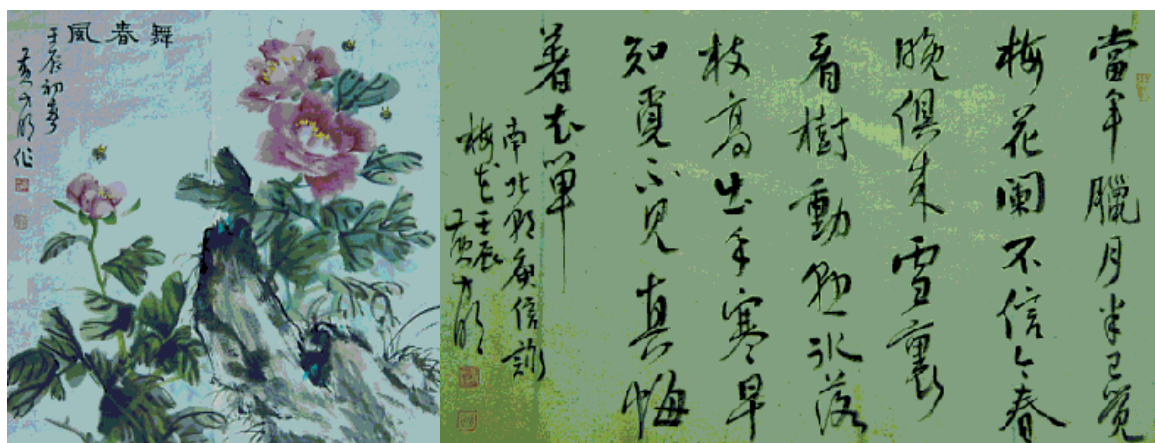 舞春風
壬辰初春
當年臘月半已覺
梅花闌不信今春
晚俱来雪裏
看樹動懸冰落
枝高出手寒早
知覓不見真悔
著衣單
南北朝庾信詠
梅花壬辰